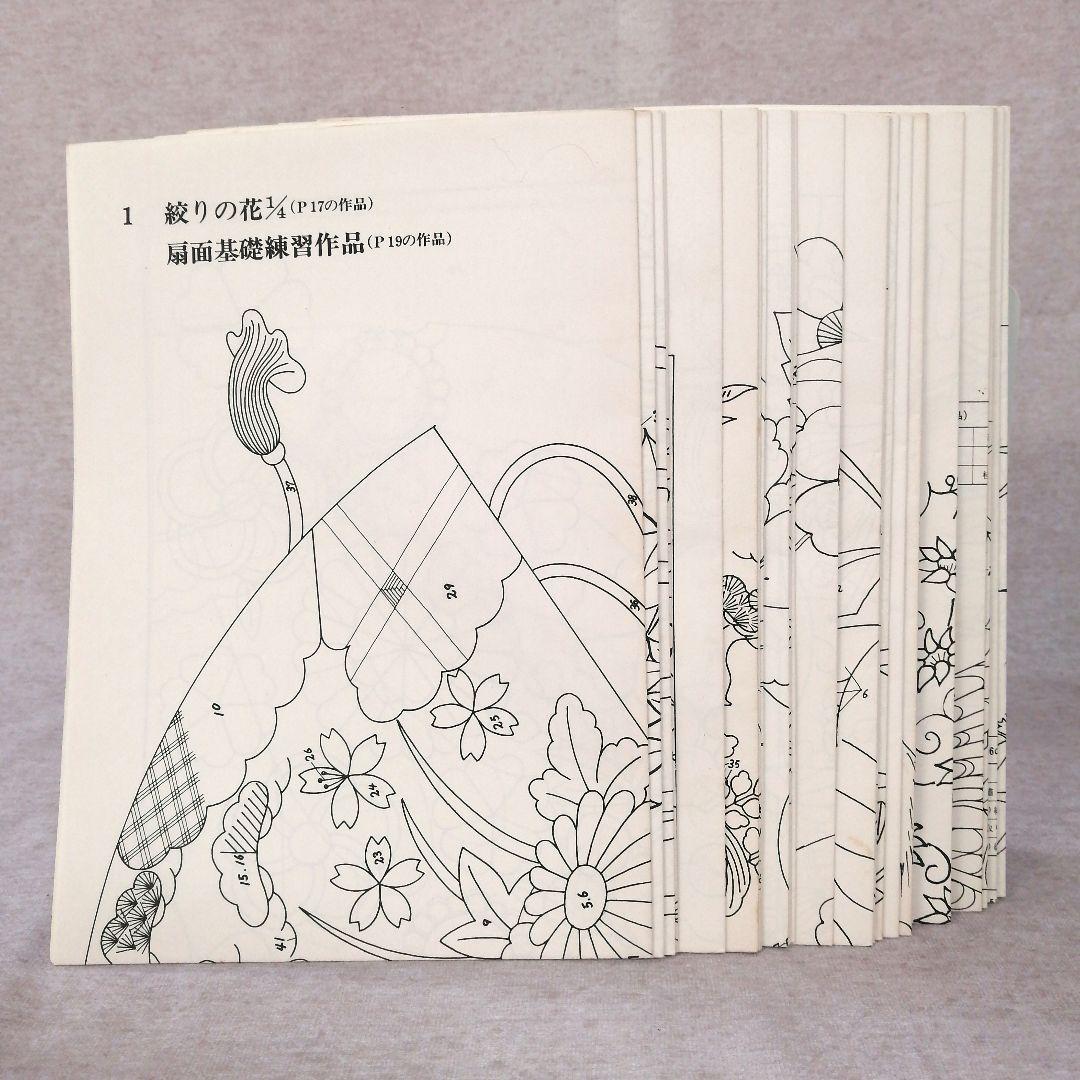 1 絞りの花1/4(P17の作品)
扇面基礎練習作品(P19の作品)
37
38
36
29
10
25
26
24
23
15.16
5.6
9
41
2
6
35
60